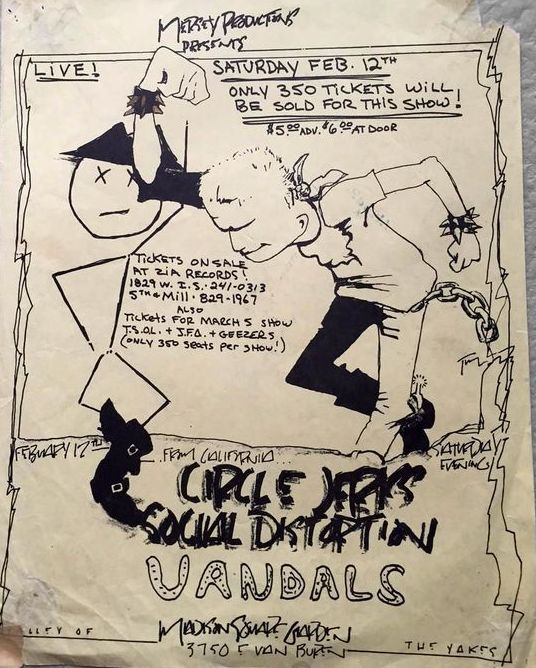 MERSEY PRODUCTIONS
PRESENTS
LIVE!
SATURDAY FEB. 12TH
ONLY 350 TICKETS WILL
BE SOLD FOR THIS SHOW!
$5.00 ADV. $6.00 AT DOOR
TICKETS ON SALE
AT ZIA RECORDS!
1829 W. I.S. · 241-0313
5TH & MILL · 829-1967
ALSO
TICKETS FOR MARCH 5 SHOW
T.S.O.L. + J.F.A. + GEEZERS
(ONLY 350 SEATS PER SHOW!)
FEBRUARY 12TH
FROM CALIFORNIA
SATURDAY
EVENING
CIRCLE JERKS
SOCIAL DISTORTION
VANDALS
MADISON SQUARE GARDEN
3750 E VAN BUREN
LLEY OF
THE YAKES